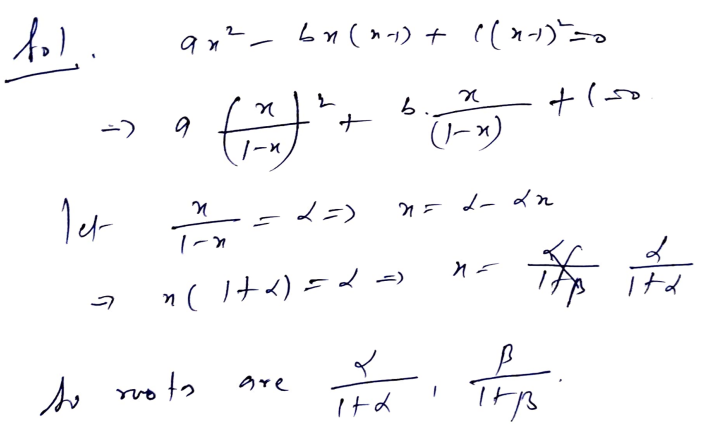 Sol. ax² - bx(x-1) + c(x-1)² = 0
=> a (x/(1-x))² + b. x/(1-x) + c = 0
let x/(1-x) = α => x = α - αx
=> x(1+α) = α => x = α/(1+α)
So roots are α/(1+α), β/(1+β).